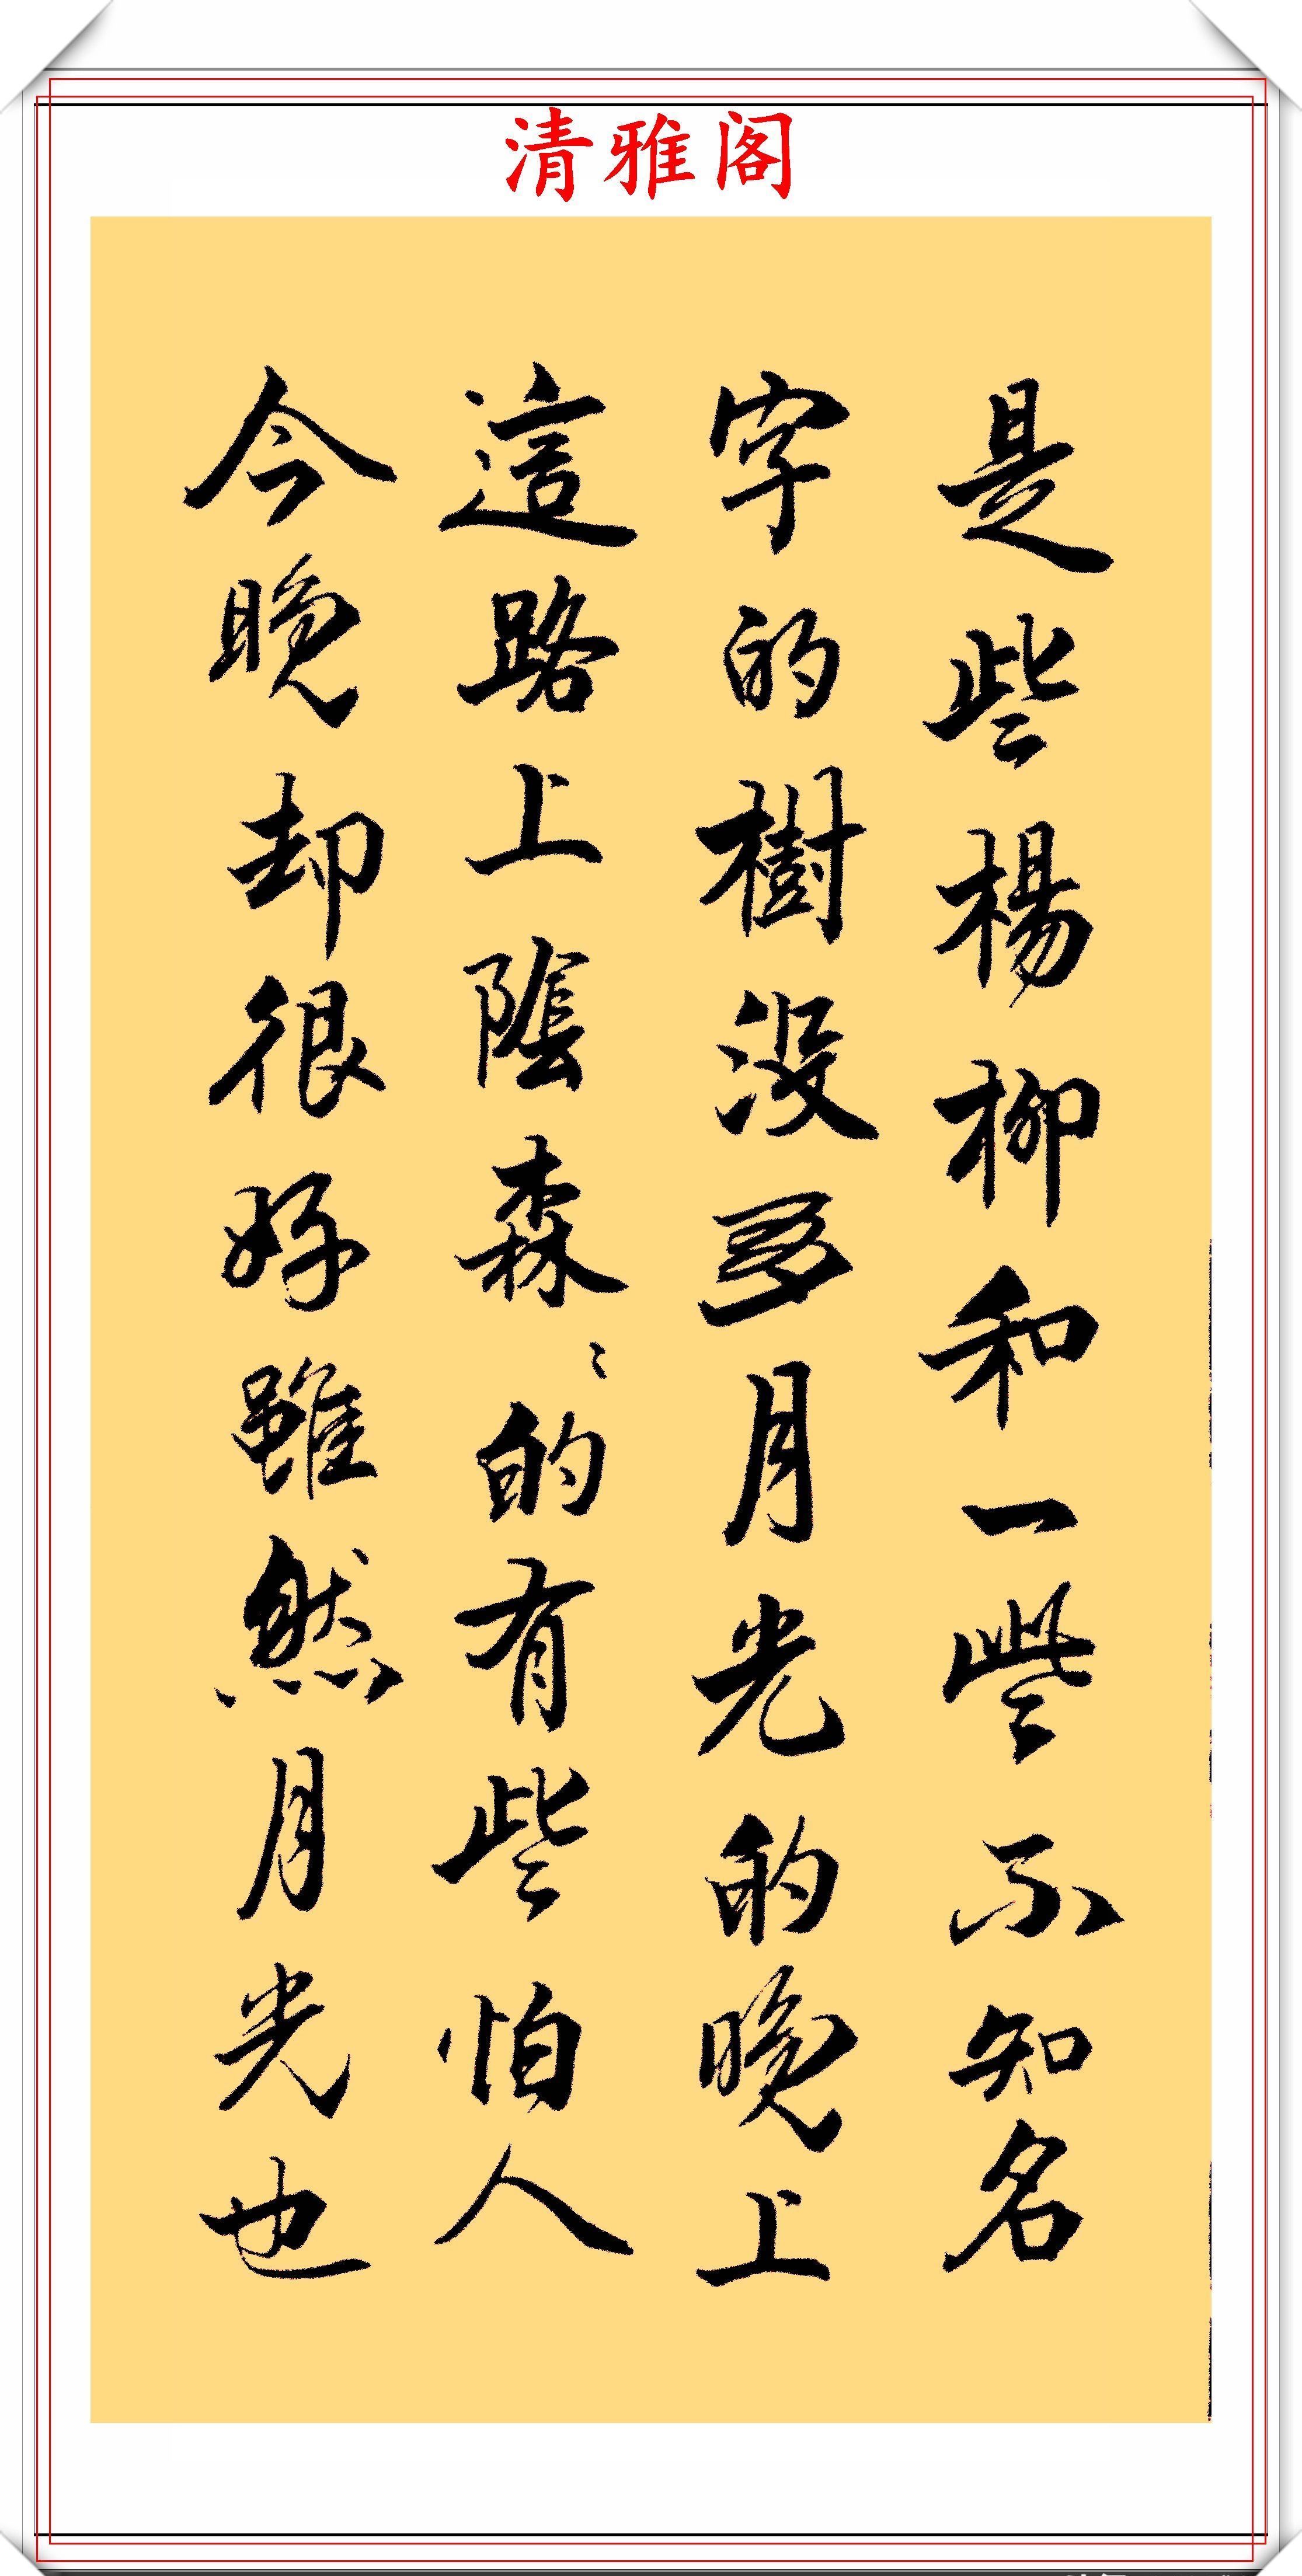 清雅阁
是些楊柳和一些不知名
字的樹沒多月光的晚上
這路上蔭森〻的有些怕人
今晚却很好雖然月光也